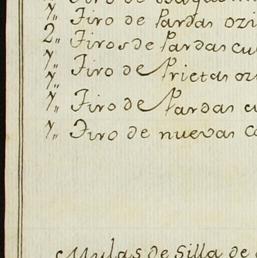 7,, Tiro de Pardas ozi
2,, Tiros de Pardas cu
7,, Tiro de Prietas oz
7,,
7,, Tiro de Pardas cu
7,, Tiro de nuevas c
Mulas de Silla de